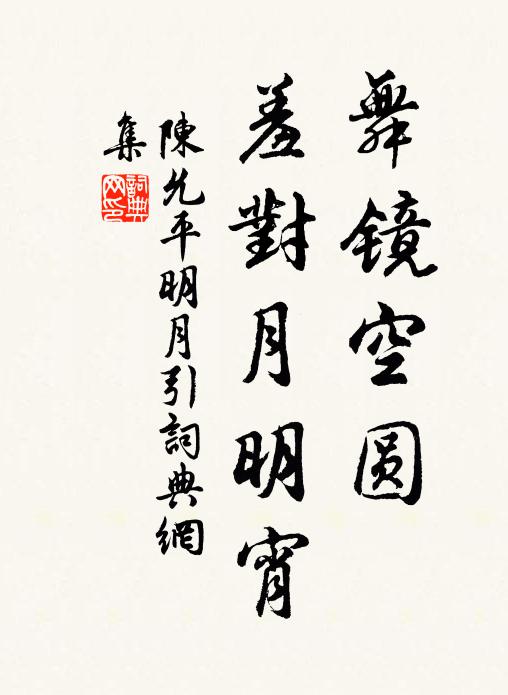 舞镜空圆
羞對月明宵
陳允平明月引詞典網
集
詞典网印